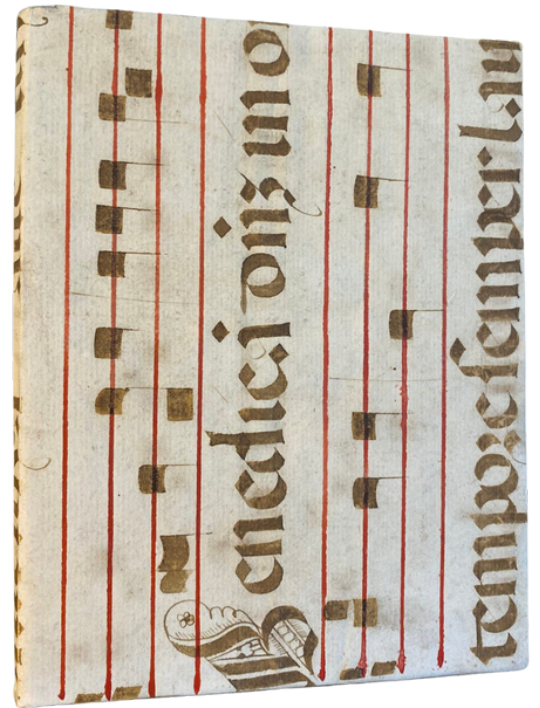 Benedicā dn̄ʒ in o
tempore semper lau